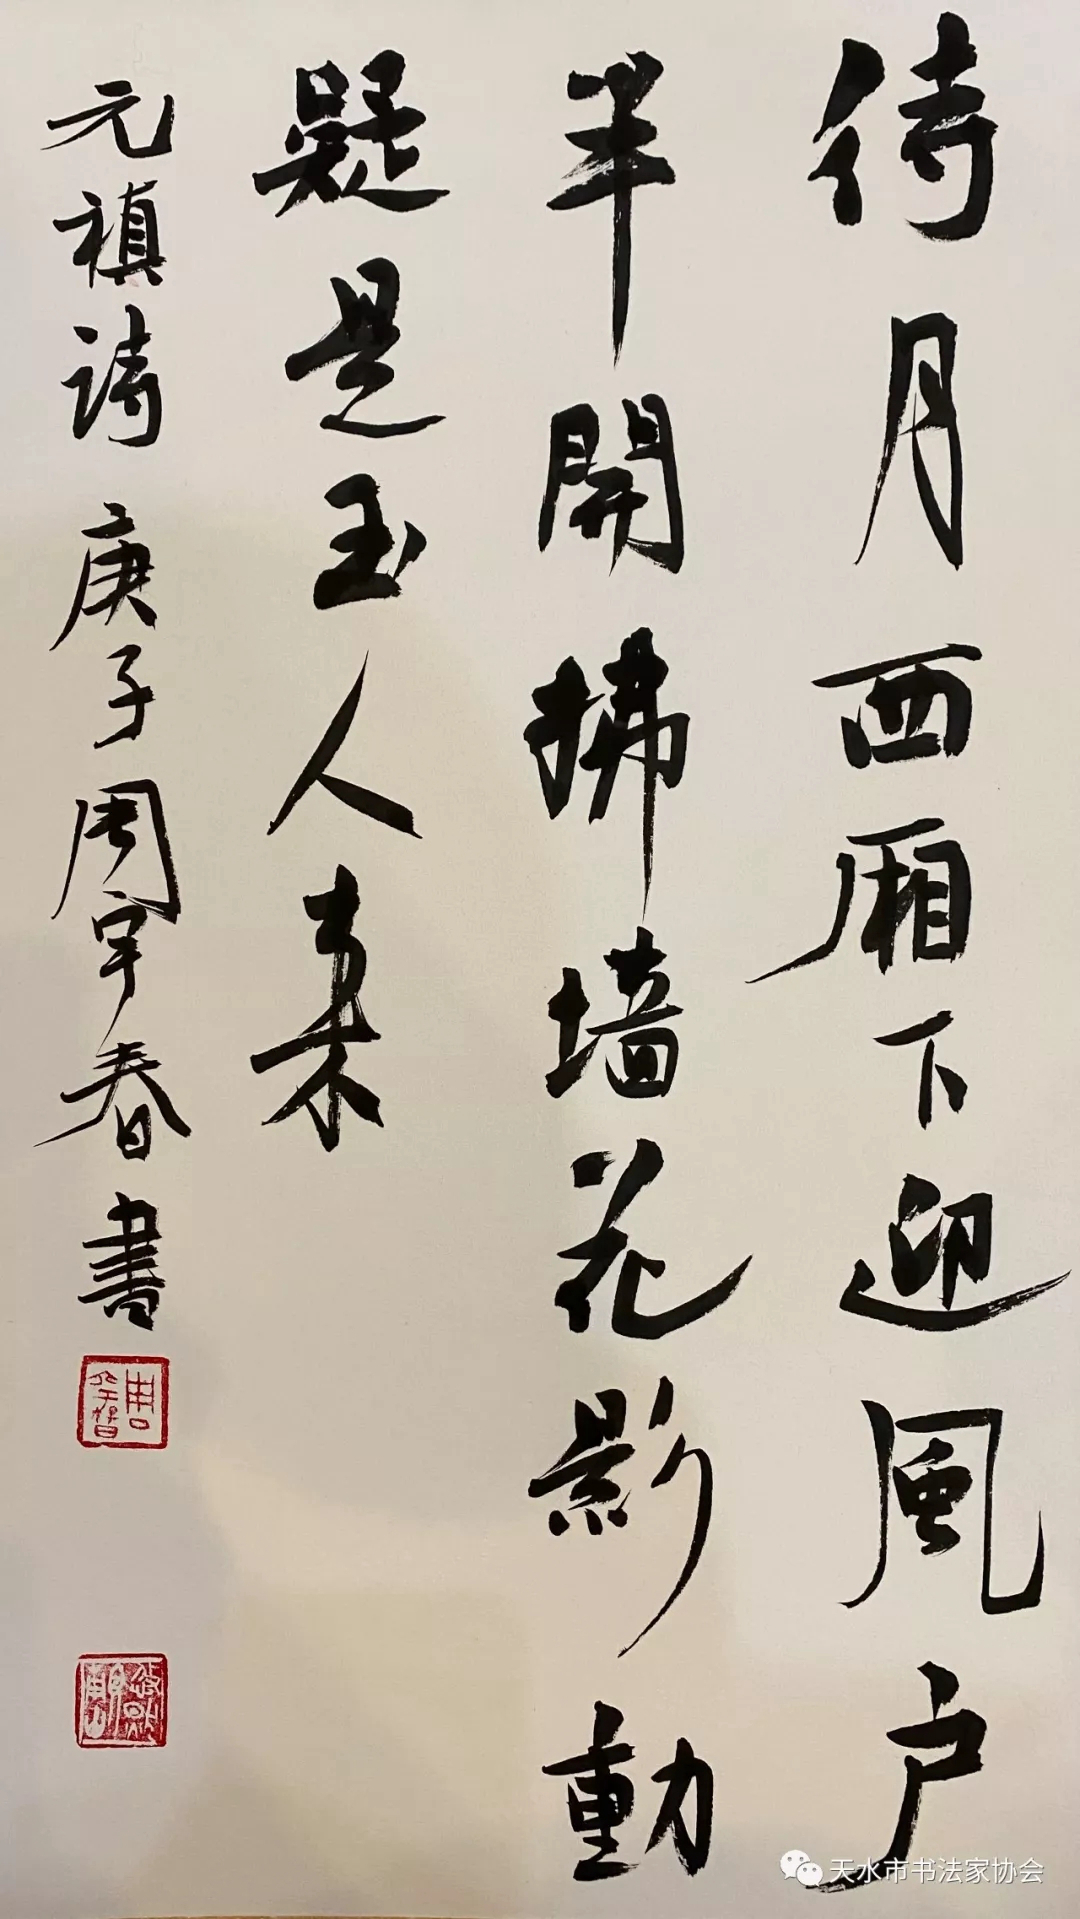 待月西厢下迎風户
半開拂墙花影動
疑是玉人来
元稹詩 庚子周宇春書
周宇春
天水市书法家协会